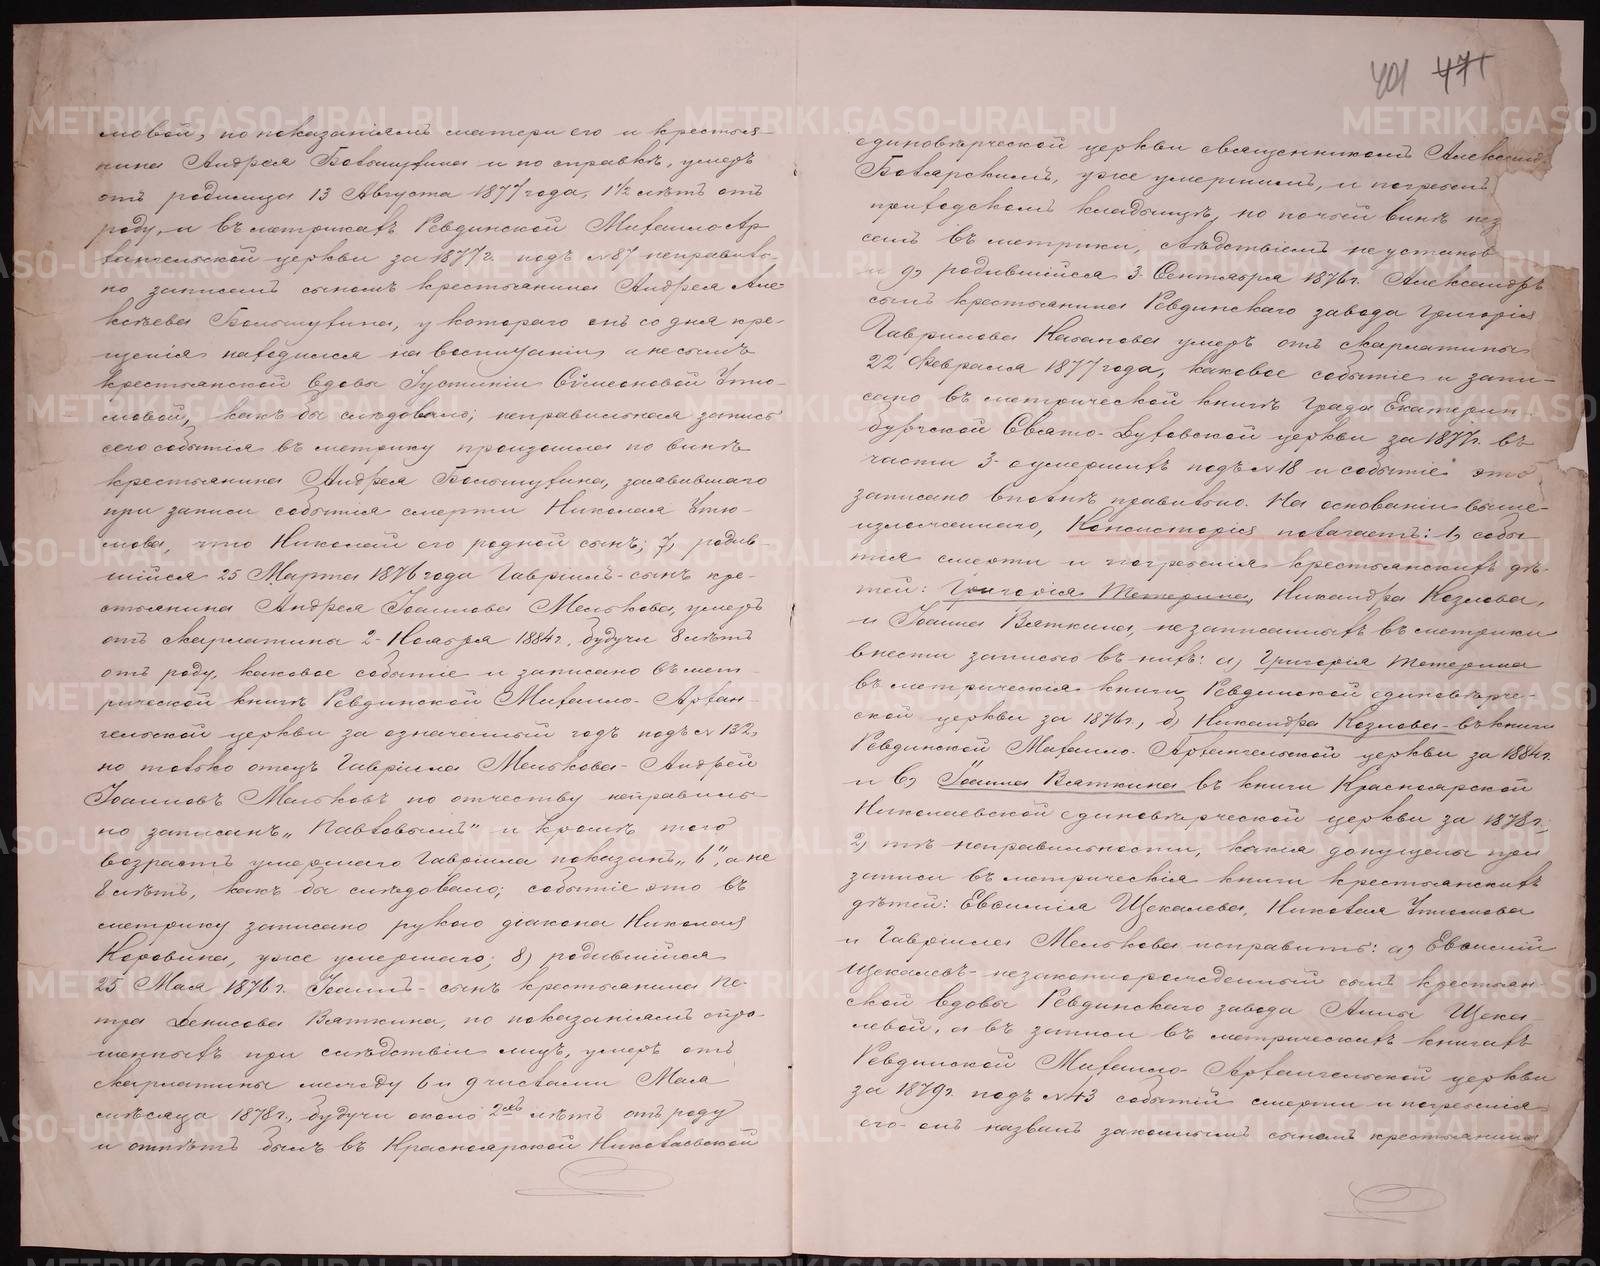 401 471
мовой, по показаніямъ матери его и крестья-
нина Андрея Большухина и по справкѣ, умеръ
отъ родимца 13 Августа 1877 года, 1½ лѣтъ отъ
роду, и въ метрикахъ Ревдинской Михаило-Ар-
хангельской церкви за 1877 г. подъ № 87 неправиль-
но записанъ сыномъ крестьянина Андрея Але-
ксѣева Большухина, у котораго онъ со дня кре-
щенія находился на воспитаніи, а не сынъ
крестьянской вдовы Іустиніи Сѵмеоновой Утю-
мовой, какъ бы слѣдовало; неправильная запись
сего событія въ метрику произошла по винѣ
крестьянина Андрея Большухина, заявившаго
при записи событія смерти Николая Утю-
мова, что Николай его родной сынъ; 7) родив-
шійся 25 Марта 1876 года Гавріилъ - сынъ кре-
стьянина Андрея Іоаннова Мелькова, умеръ
отъ скарлатины 2 - Ноября 1884 г. будучи 8 лѣтъ
отъ роду, каковое событіе и записано въ мет-
рической книгѣ Ревдинской Михаило - Архан-
гельской церкви за означенный годъ подъ № 132,
но только отецъ Гавріила Мелькова - Андрей
Іоанновъ Мельковъ по отчеству неправиль-
но записанъ „Павловымъ" и кромѣ того
возрастъ умершаго Гавріила показанъ „6", а не
8 лѣтъ, какъ бы слѣдовало; событіе это въ
метрику записано рукою діакона Николая
Коровина, уже умершаго; 8) родившійся
25 Мая 1876 г. Іоаннъ - сынъ крестьянина Пе-
тра Денисова Вяткина, по показаніямъ спро-
шенныхъ при слѣдствіи лицъ, умеръ отъ
скарлатины между 6 и 9 числами Мая
мѣсяца 1878 г., будучи около 2хъ лѣтъ отъ роду
и отпѣтъ былъ въ Красноярской Николаевской
единовѣрческой церкви священникомъ Алексѣем
Боярскимъ, уже умершимъ, и погребенъ
приходскомъ кладбищѣ, но по чьей винѣ не з
санъ въ метрики, слѣдствіемъ не установ
и 9) родившійся 3 Сентября 1876 г. Александръ
сынъ крестьянина Ревдинскаго завода Григорія
Гаврилова Казанова умеръ отъ скарлатины
22 Февраля 1877 года, каковое событіе и запи-
сано въ метрической книгѣ града Екатерин-
бургской Свято - Духовской церкви за 1877 г. въ
части 3 - о умершихъ подъ № 18 и событіе это
записано вполнѣ правильно. На основаніи выше-
изложеннаго, Консисторія полагаетъ: 1) собы-
тія смерти и погребенія крестьянскихъ дѣ-
тей: Григорія Тетерина, Никандра Козлова,
и Іоанна Вяткина, не записанныхъ въ метрики
внести записью въ нихъ: а) Григорія Тетерина
въ метрическія книги Ревдинской единовѣрче-
ской церкви за 1876 г., б) Никандра Козлова - въ книги
Ревдинской Михаило - Архангельской церкви за 1884 г.
и в) Іоанна Вяткина въ книги Красноярской
Николаевской единовѣрческой церкви за 1878 г.;
2) тѣ неправильности, какія допущены при
записи въ метрическія книги крестьянскихъ
дѣтей: Евсимія Щекалева, Николая Утюмова
и Гавріила Мелькова исправить: а) Евсимій
Щекалевъ - незаконнорожденный сынъ крестьян-
ской вдовы Ревдинскаго завода Анны Щека-
левой, а въ записи въ метрическихъ книгахъ
Ревдинской Михаило - Архангельской церкви
за 1879 г. подъ № 43 событій смерти и погребенія
его - онъ названъ законнымъ сыномъ крестьянина
METRIKI.GASO-URAL.RU